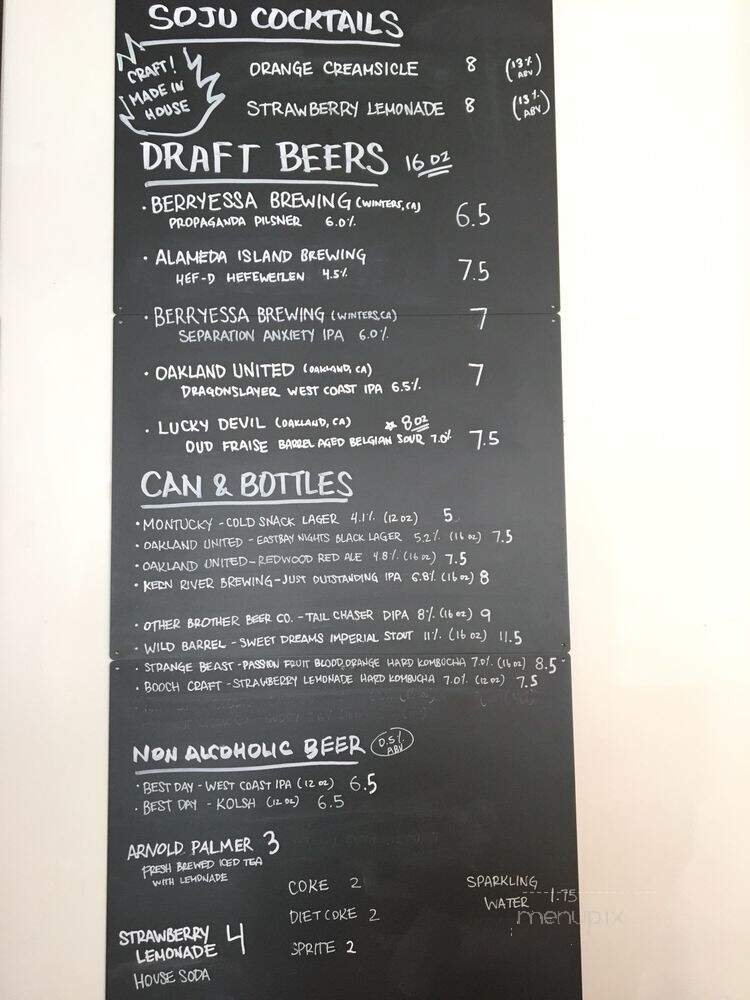 SOJU COCKTAILS
CRAFT!
MADE IN
HOUSE
ORANGE CREAMSICLE 8 (13% ABV)
STRAWBERRY LEMONADE 8 (13% ABV)
DRAFT BEERS 16 OZ
• BERRYESSA BREWING (WINTERS, CA) 6.5
PROPAGANDA PILSNER 6.0%
• ALAMEDA ISLAND BREWING 7.5
HEF-D HEFEWEIZEN 4.5%
• BERRYESSA BREWING (WINTERS, CA) 7
SEPARATION ANXIETY IPA 6.0%
• OAKLAND UNITED (OAKLAND, CA) 7
DRAGONSLAYER WEST COAST IPA 6.5%
• LUCKY DEVIL (OAKLAND, CA) ☆ 8 OZ
OUD FRAISE BARREL AGED BELGIAN SOUR 7.0% 7.5
CAN & BOTTLES
• MONTUCKY - COLD SNACK LAGER 4.1% (12 OZ) 5
• OAKLAND UNITED - EASTBAY NIGHTS BLACK LAGER 5.2% (16 OZ) 7.5
• OAKLAND UNITED - REDWOOD RED ALE 4.8% (16 OZ) 7.5
• KERN RIVER BREWING - JUST OUTSTANDING IPA 6.8% (16 OZ) 8
• OTHER BROTHER BEER CO. - TAIL CHASER DIPA 8% (16 OZ) 9
• WILD BARREL - SWEET DREAMS IMPERIAL STOUT 11% (16 OZ) 11.5
• STRANGE BEAST - PASSION FRUIT BLOOD ORANGE HARD KOMBUCHA 7.0% (16 OZ) 8.5
• BOOCH CRAFT - STRAWBERRY LEMONADE HARD KOMBUCHA 7.0% (12 OZ) 7.5
NON ALCOHOLIC BEER 0.5% ABV
• BEST DAY - WEST COAST IPA (12 OZ) 6.5
• BEST DAY - KOLSH (12 OZ) 6.5
ARNOLD PALMER 3
FRESH BREWED ICED TEA
WITH LEMONADE
STRAWBERRY
LEMONADE 4
HOUSE SODA
COKE 2
DIET COKE 2
SPRITE 2
SPARKLING
WATER 1.75
menupix